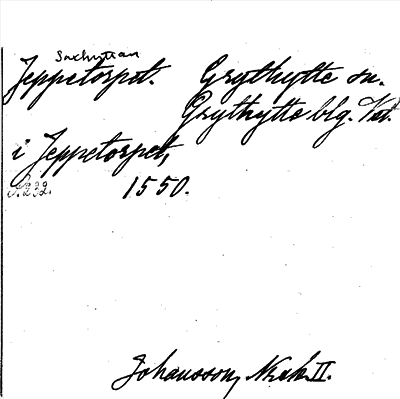 Saxhyttan
Jeppetorpet. Grythytte sn.
Grythytte blg. Vstl.
i Jeppetorpet,
s. 232. 1550.
Johansson, Norab. II.